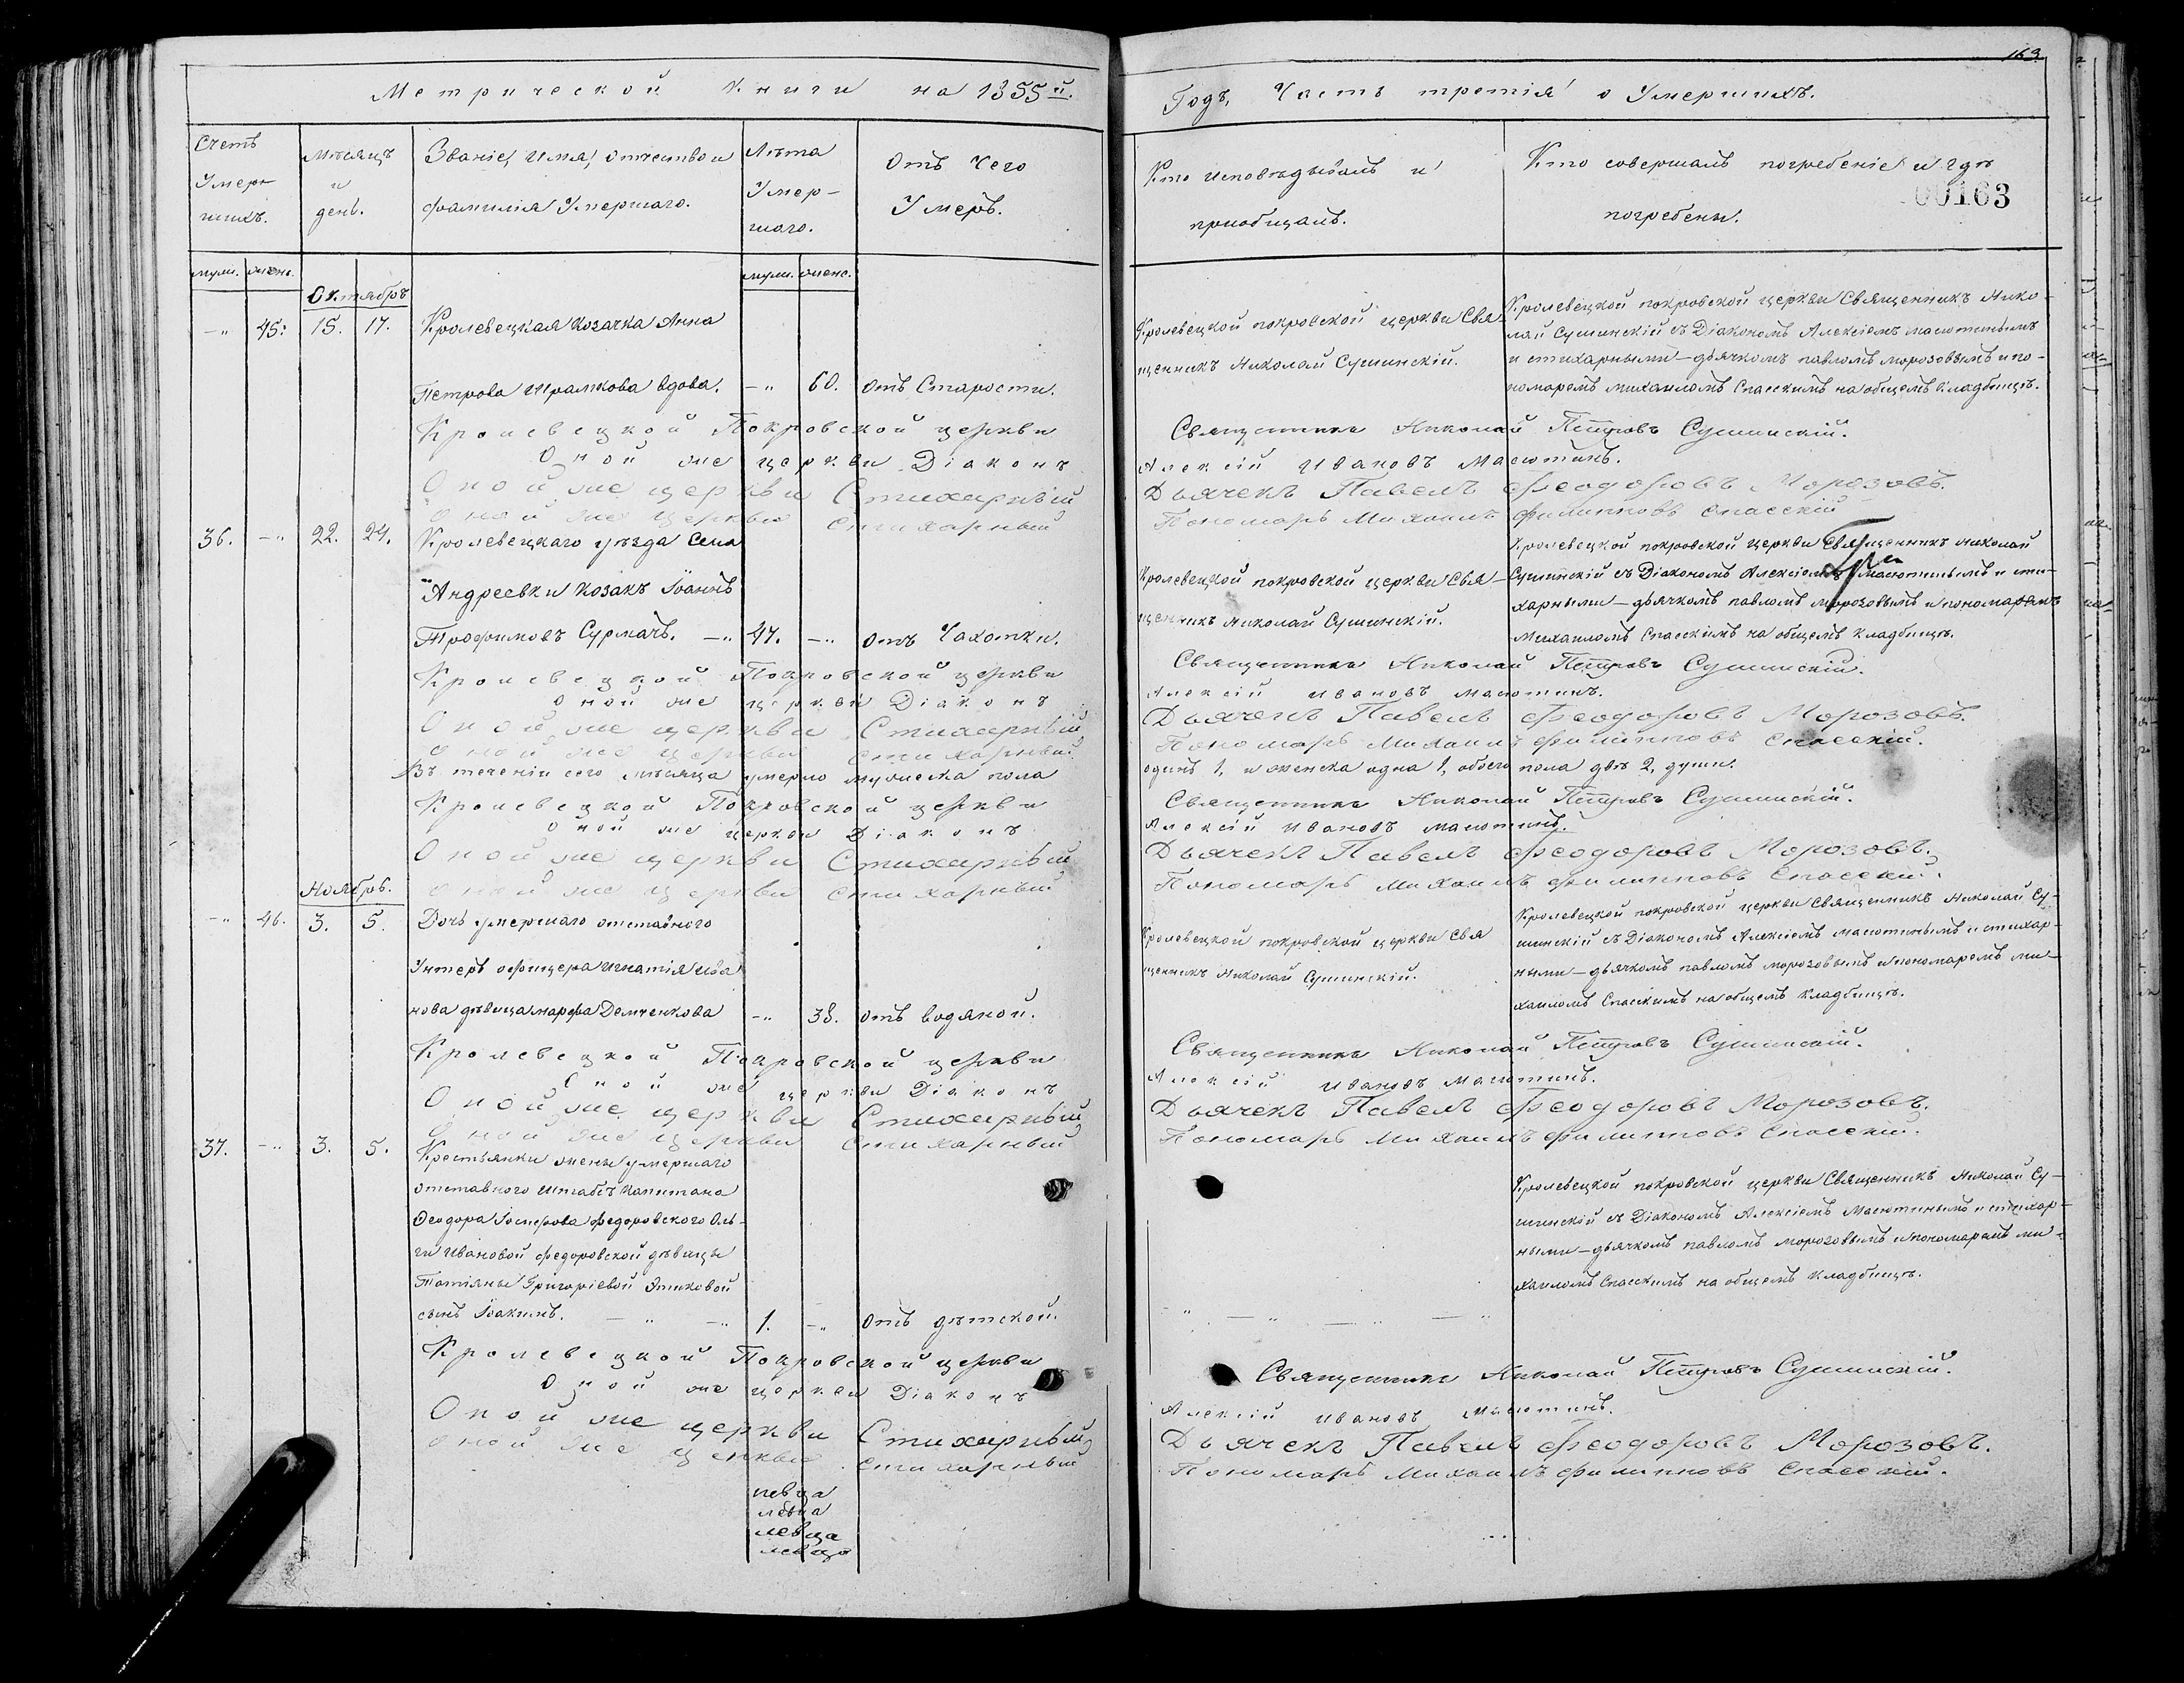 Метрической Книги на 1855й.
Счетъ Умер-шихъ.
Мѣсяцъ и день.
Званіе, имя, отчество и фамилія Умершаго.
Лѣта Умер-шаго.
Отъ Чего Умеръ.
муж. женс.
муж. женс.
Октябрь
-" 45. 15. 17. Кролевецкая козачка Анна
Петрова Шрамкова вдова. -" 60. отъ Старости.
Кролевецкой Покровской церкви
Оной же церкви Діаконъ
Оной же церкви Стихарный
Оной же церкви стихарный
36. -" 22. 24. Кролевецкаго уѣзда Села
Андреевки козакъ Іоаннъ
Трофимовъ Сурмачъ. -" 47. -" отъ Чахотки.
Кролевецкой Покровской церкви
Оной же церкви Діаконъ
Оной же церкви Стихарный
Оной же церкви стихарный
Въ теченіи сего мѣсяца умерло мужеска пола
Кролевецкой Покровской церкви
Оной же церкви Діаконъ
Оной же церкви Стихарный
Ноябрь.
Оной же церкви стихарный
-" 46. 3. 5. Дочь умершаго отставного
Унтеръ офицера Игнатія Ива
нова дѣвица марфа Демченкова -" 38. отъ водяной.
Кролевецкой Покровской церкви
Оной же церкви Діаконъ
Оной же церкви Стихарный
Оной же церкви стихарный
37. -" 3. 5. Крестьянки жены умершаго
отставного штабсъ капитана
Феодора Федоровского Оль-
ги Ивановой Федоровской дѣвицы
Татіяны Григоріевой
сынъ Іоакимъ. -" -" 1. -" отъ дѣтской.
Кролевецкой Покровской церкви
Оной же церкви Діаконъ
Оной же церкви Стихарный
Оной же церкви стихарный
163
Годъ, Часть третія о Умершихъ.
Кто исповѣдывалъ и пріобщалъ.
Кто совершалъ погребеніе и гдѣ погребены.
00163
Кролевецкой покровской церкви Свя-
щенникъ Николай Сушинскій.
Кролевецкой покровской церкви Священникъ Нико-
лай Сушинскій съ Діакономъ Алексіемъ Масютинымъ
и стихарными - дьячкомъ павломъ морозовымъ и по-
номаремъ михаиломъ Спасскимъ на общемъ кладбищѣ.
Священникъ Николай Петровъ Сушинскій.
Алексій Ивановъ Масютинъ.
Дьячекъ Павелъ Феодоровъ Морозовъ.
Пономарь Михаилъ филипповъ Спасскій
Кролевецкой покровской церкви Свя-
щенникъ Николай Сушинскій.
Кролевецкой покровской церкви Священникъ николай
Сушинскій съ Діакономъ Алексіемъ Масютинымъ и сти-
харными - дьячкомъ павломъ морозовымъ и пономаремъ
михаиломъ Спасскимъ на общемъ кладбищѣ.
Священникъ Николай Петровъ Сушинскій.
Алексій Ивановъ масютинъ.
Дьячекъ Павелъ Феодоровъ Морозовъ.
Пономарь Михаилъ филипповъ Спасскій.
одинъ 1, и женска одна 1, обоего пола двѣ 2, души.
Священникъ Николай Петровъ Сушинскій.
Алексій Ивановъ масютинъ.
Дьячекъ Павелъ Феодоровъ Морозовъ.
Пономарь Михаилъ филипповъ Спасскій.
Кролевецкой покровской церкви Свя
щенникъ Николай Сушинскій.
Кролевецкой покровской церкви Священникъ Николай Су-
шинскій съ Діакономъ Алексіемъ масютинымъ и стихар-
ными - дьячкомъ павломъ морозовымъ и пономаремъ ми-
хаиломъ Спасскимъ на общемъ кладбищѣ.
Священникъ Николай Петровъ Сушинскій.
Алексій Ивановъ Масютинъ.
Дьячекъ Павелъ Феодоровъ Морозовъ.
Пономарь Михаилъ филипповъ Спасскій.
Кролевецкой покровской церкви Священникъ Николай Су-
шинскій съ Діакономъ Алексіемъ Масютинымъ и стихар-
ными - дьячкомъ павломъ морозовымъ и пономаремъ ми-
хаиломъ Спасскимъ на общемъ кладбищѣ.
Священникъ Николай Петровъ Сушинскій.
Алексій Ивановъ Масютинъ.
Дьячекъ Павелъ Феодоровъ Морозовъ.
Пономарь Михаилъ филипповъ Спасскій.